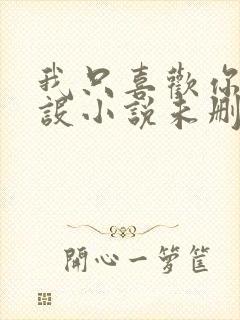 我只喜歡你
設小說未刪
開心一籮筐